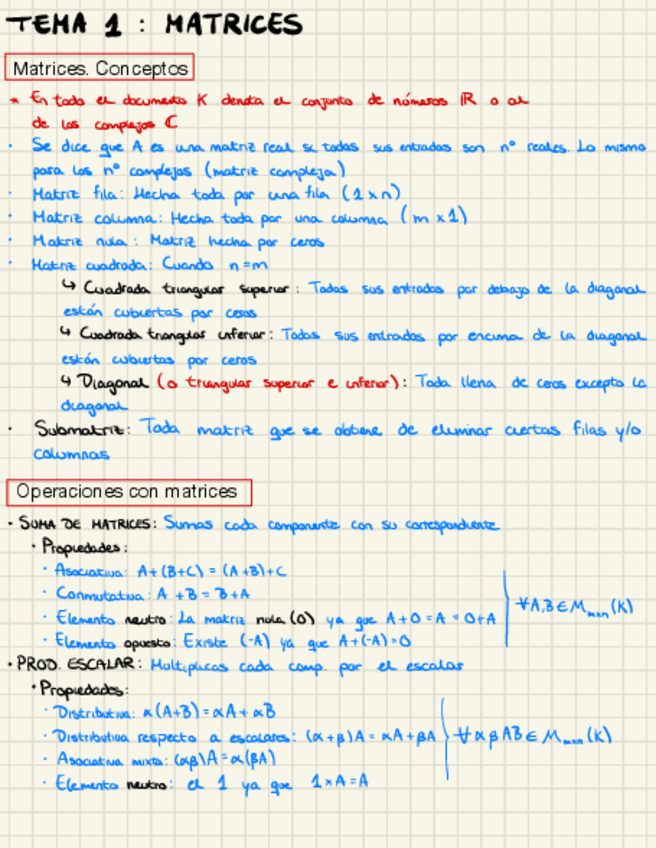 TEMA 1 : MATRICES
Matrices. Conceptos
* En todo el documento K denota el conjunto de números ℝ o al
de los complejos ℂ
· Se dice que A es una matriz real si todas sus entradas son nº reales. Lo mismo
para los nº complejos (matriz compleja)
· Matriz fila: Hecha toda por una fila (1×n)
· Matriz columna: Hecha toda por una columna (m×1)
· Matriz nula: Matriz hecha por ceros
· Matriz cuadrada: Cuando n=m
↳ Cuadrada triangular superior: Todas sus entradas por debajo de la diagonal
están cubiertas por ceros
↳ Cuadrada triangular inferior: Todas sus entradas por encima de la diagonal
están cubiertas por ceros
↳ Diagonal (o triangular superior e inferior): Toda llena de ceros excepto la
diagonal
· Submatriz: Toda matriz que se obtiene de eliminar ciertas filas y/o
columnas
Operaciones con matrices
· SUMA DE MATRICES: Sumas cada componente con su correspondiente
· Propiedades:
· Asociativa: A+(B+C) = (A+B)+C
· Conmutativa: A+B = B+A
· Elemento neutro: La matriz nula (0) ya que A+0=A=0+A
∀A,B∈M_mxn(K)
· Elemento opuesto: Existe (-A) ya que A+(-A)=0
· PROD. ESCALAR: Multiplicas cada comp. por el escalar
· Propiedades:
· Distributiva: α(A+B) = αA + αB
· Distributiva respecto a escalares: (α+β)A = αA+βA
∀αβAB∈M_mxn(K)
· Asociativa mixta: (αβ)A = α(βA)
· Elemento neutro: el 1 ya que 1×A=A